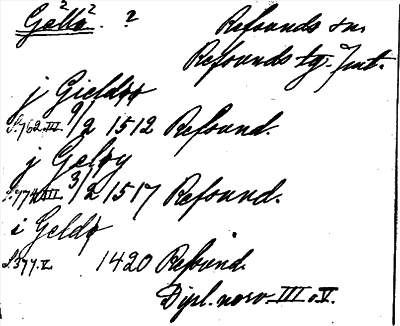 Gella. ? Refsunds sn.
Refsunds tg. Jmt.
j Gieldøø
S. 762. III. 9/2 1512 Refsund.
j Geløy
S. 774. III. 3/2 1517 Refsund.
i Geldø
S. 377. V. 1420 Refsund.
Dipl. norv. III o. V.